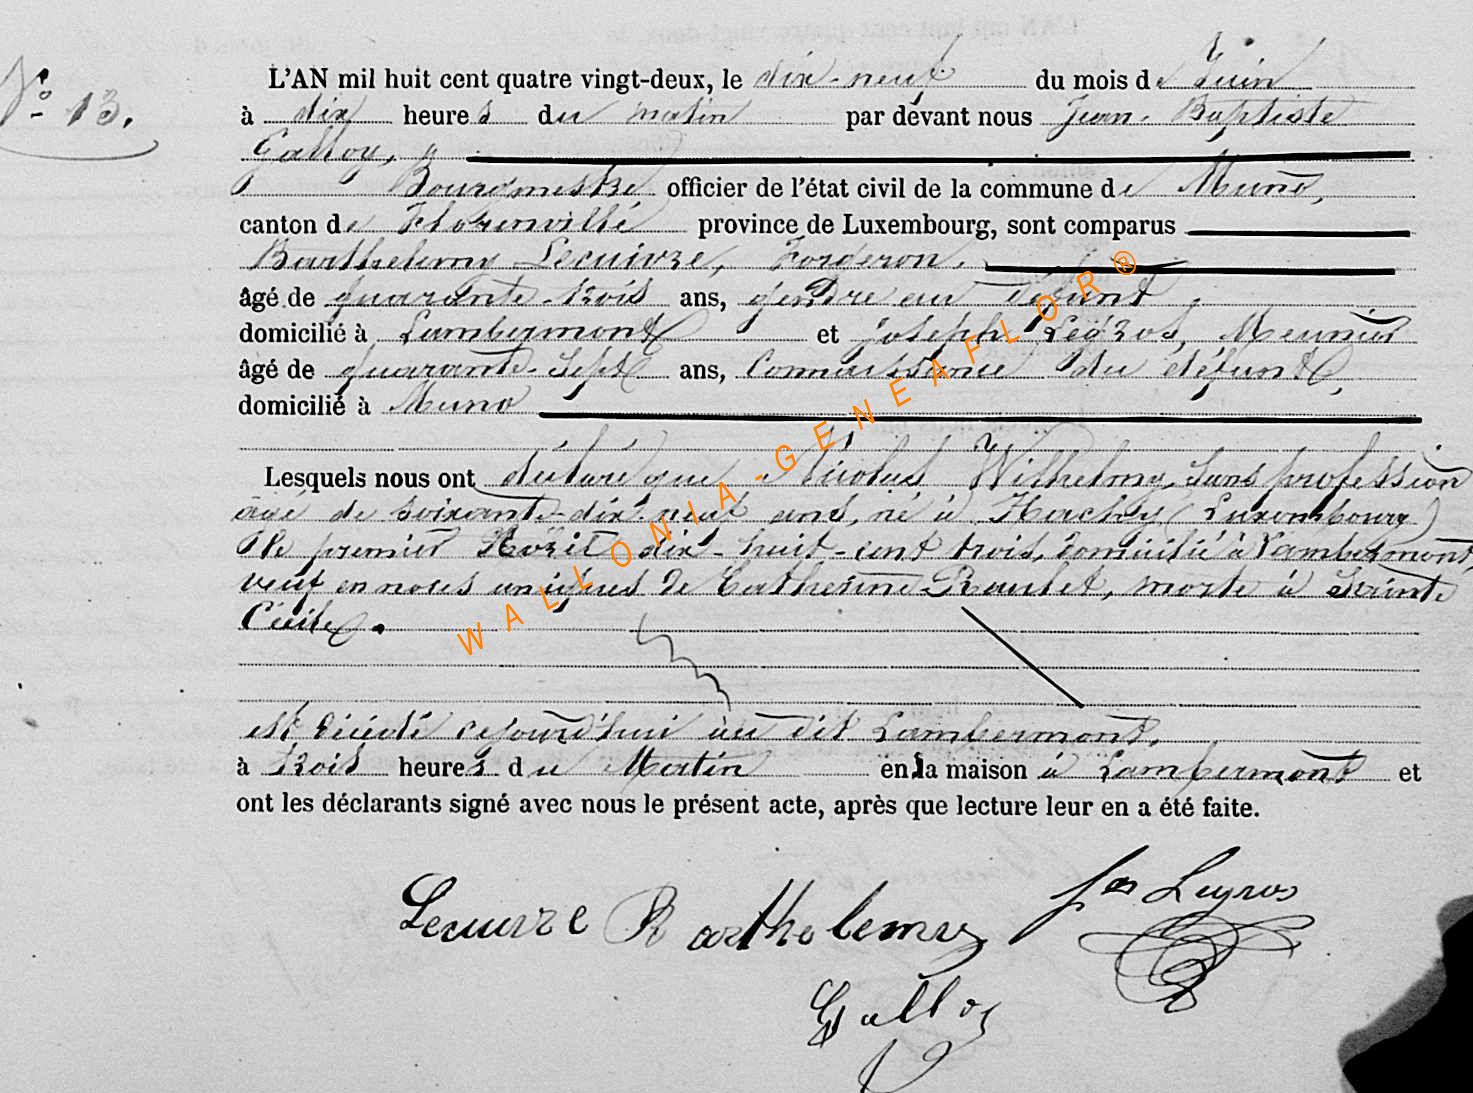 N° 13.
L'AN mil huit cent quatre vingt-deux, le dix-neuf du mois de Juin
à dix heures du matin par devant nous Jean-Baptiste
Galloy,
Bourgmestre officier de l'état civil de la commune de Muno,
canton de Florenville province de Luxembourg, sont comparus
Barthelemy Lecuivre, Forgeron,
âgé de quarante-trois ans, gendre au défunt,
domicilié à Lambermont et Joseph Legros, Meunier
âgé de quarante-sept ans, Connaissance du défunt,
domicilié à Muno
Lesquels nous ont déclaré que Nicolas Wilhelmy, sans profession
âgé de soixante-dix-neuf ans, né à Hachy (Luxembourg)
le premier dix-huit-cent trois, domicilié à Lambermont,
veuf en noces uniques de Catherine Raulet, morte à Sainte
Cécile.
est décédé cejourd'hui au dit Lambermont,
à trois heures du Matin en la maison à Lambermont et
ont les déclarants signé avec nous le présent acte, après que lecture leur en a été faite.
Lecuivre Barthelemy Jos Legros
Galloy
WALLONIA-GENEAFLOR®